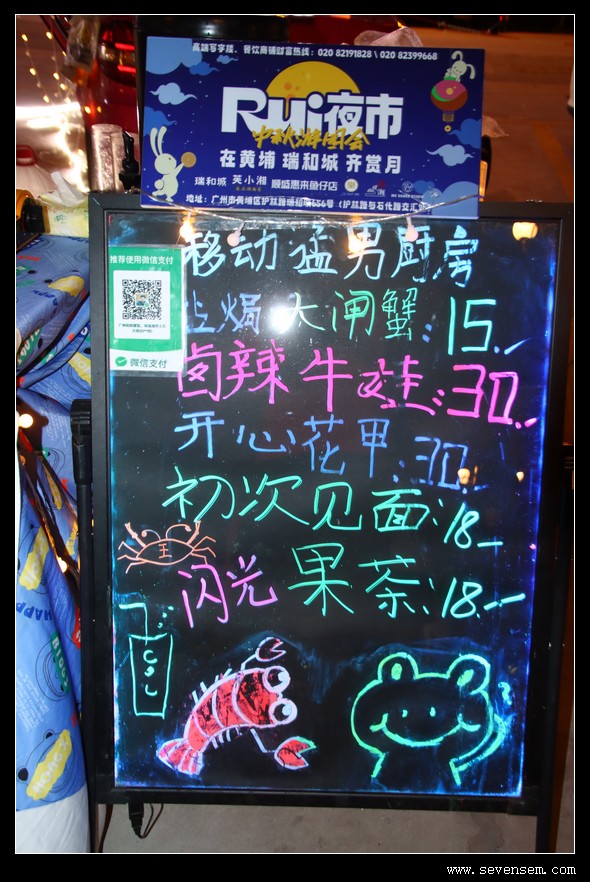 高端写字楼、餐饮商铺财富热线：020 82191828 \ 020 82399668
Rui夜市
中秋游园会
在黄埔 瑞和城 齐赏月
瑞和城 芙小湘 顺盛惠来鱼仔店
地址：广州市黄埔区护林路
(护林路与石化路交汇
移动 猛男厨房
推荐使用微信支付
微信支付
焗 大闸蟹：15.
卤辣 牛蛙：30.
开心花甲：30.
初次见面：18.
王
闪光 果茶：18.
HAPP
www.sevensem.com